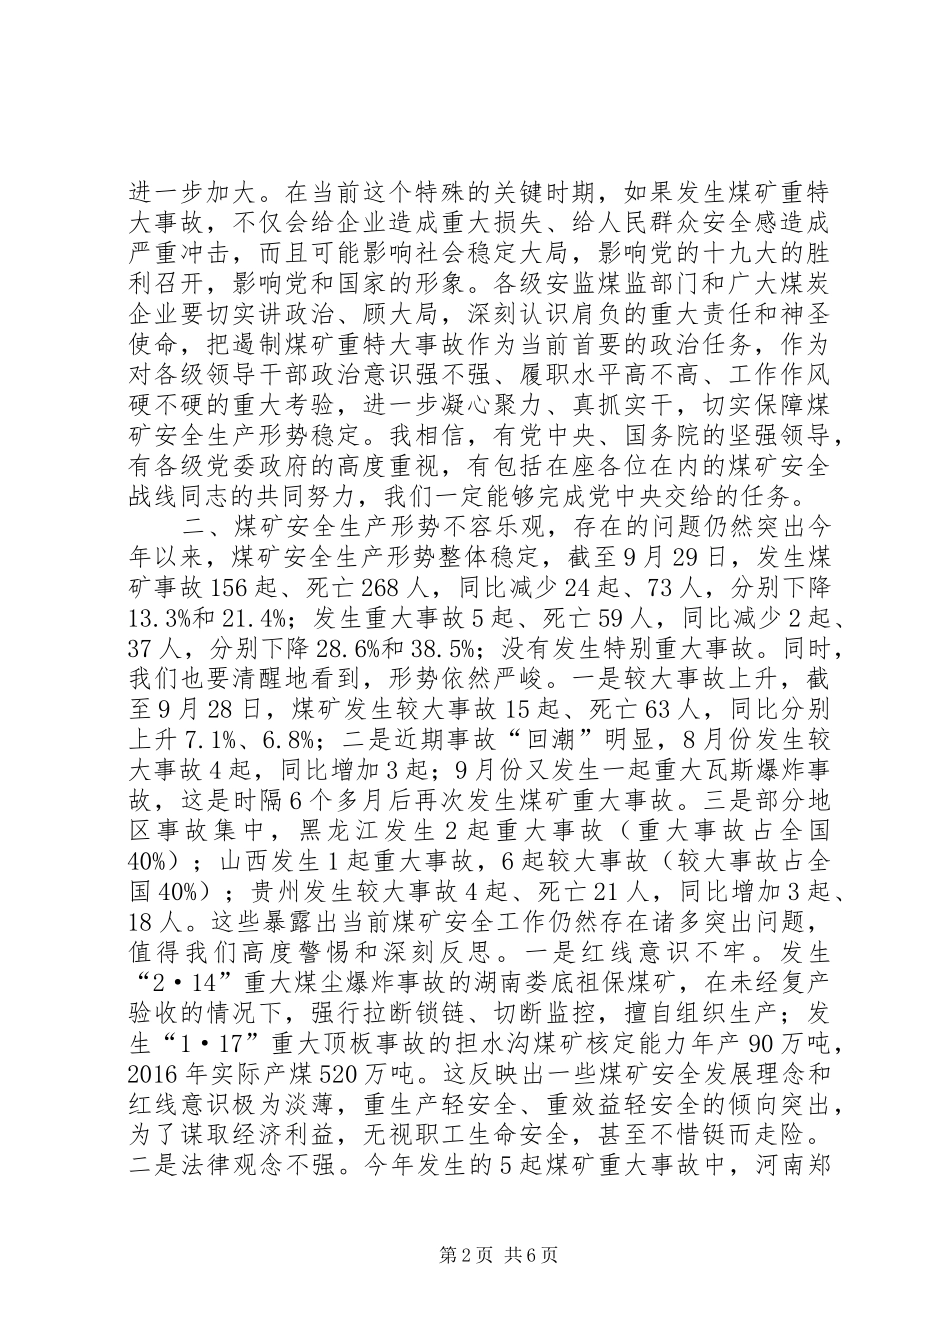 进一步加大。在当前这个特殊的关键时期，如果发生煤矿重特
大事故，不仅会给企业造成重大损失、给人民群众安全感造成
严重冲击，而且可能影响社会稳定大局，影响党的十九大的胜
利召开，影响党和国家的形象。各级安监煤监部门和广大煤炭
企业要切实讲政治、顾大局，深刻认识肩负的重大责任和神圣
使命，把遏制煤矿重特大事故作为当前首要的政治任务，作为
对各级领导干部政治意识强不强、履职水平高不高、工作作风
硬不硬的重大考验，进一步凝心聚力、真抓实干，切实保障煤
矿安全生产形势稳定。我相信，有党中央、国务院的坚强领导，
有各级党委政府的高度重视，有包括在座各位在内的煤矿安全
战线同志的共同努力，我们一定能够完成党中央交给的任务。
二、煤矿安全生产形势不容乐观，存在的问题仍然突出今
年以来，煤矿安全生产形势整体稳定，截至9月29日，发生煤
矿事故156起、死亡268人，同比减少24起、73人，分别下降
13.3%和21.4%；发生重大事故5起、死亡59人，同比减少2起、
37人，分别下降28.6%和38.5%；没有发生特别重大事故。同时，
我们也要清醒地看到，形势依然严峻。一是较大事故上升，截
至9月28日，煤矿发生较大事故15起、死亡63人，同比分别
上升7.1%、6.8%；二是近期事故“回潮”明显，8月份发生较
大事故4起，同比增加3起；9月份又发生一起重大瓦斯爆炸事
故，这是时隔6个多月后再次发生煤矿重大事故。三是部分地
区事故集中，黑龙江发生2起重大事故（重大事故占全国
40%）；山西发生1起重大事故，6起较大事故（较大事故占全
国40%）；贵州发生较大事故4起、死亡21人，同比增加3起、
18人。这些暴露出当前煤矿安全工作仍然存在诸多突出问题，
值得我们高度警惕和深刻反思。一是红线意识不牢。发生
“2·14”重大煤尘爆炸事故的湖南娄底祖保煤矿，在未经复产
验收的情况下，强行拉断锁链、切断监控，擅自组织生产；发
生“1·17”重大顶板事故的担水沟煤矿核定能力年产90万吨，
2016年实际产煤520万吨。这反映出一些煤矿安全发展理念和
红线意识极为淡薄，重生产轻安全、重效益轻安全的倾向突出，
为了谋取经济利益，无视职工生命安全，甚至不惜铤而走险。
二是法律观念不强。今年发生的5起煤矿重大事故中，河南郑
第2页 共6页